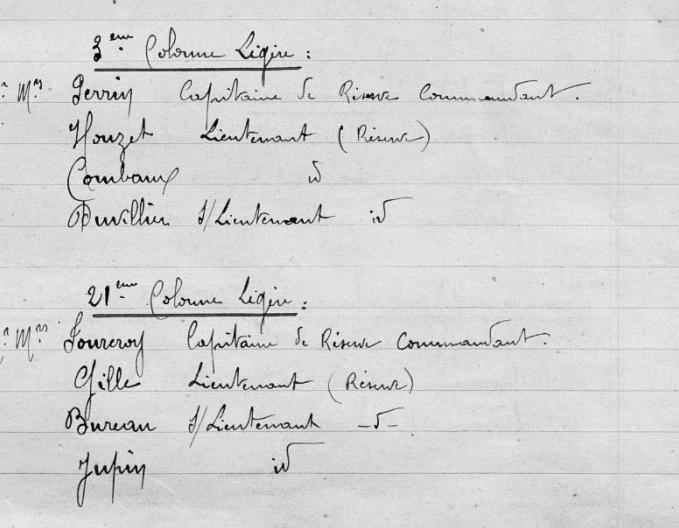 3ème Colonne Légère :
Mrs Perrin Capitaine de Réserve Commandant.
Houzet Lieutenant (Réserve)
Combaux id
Duvillier s/Lieutenant id
21ème Colonne Légère :
Mrs Fourcroy Capitaine de Réserve Commandant.
Gille Lieutenant (Réserve)
Bureau s/Lieutenant -d-
Jupin id